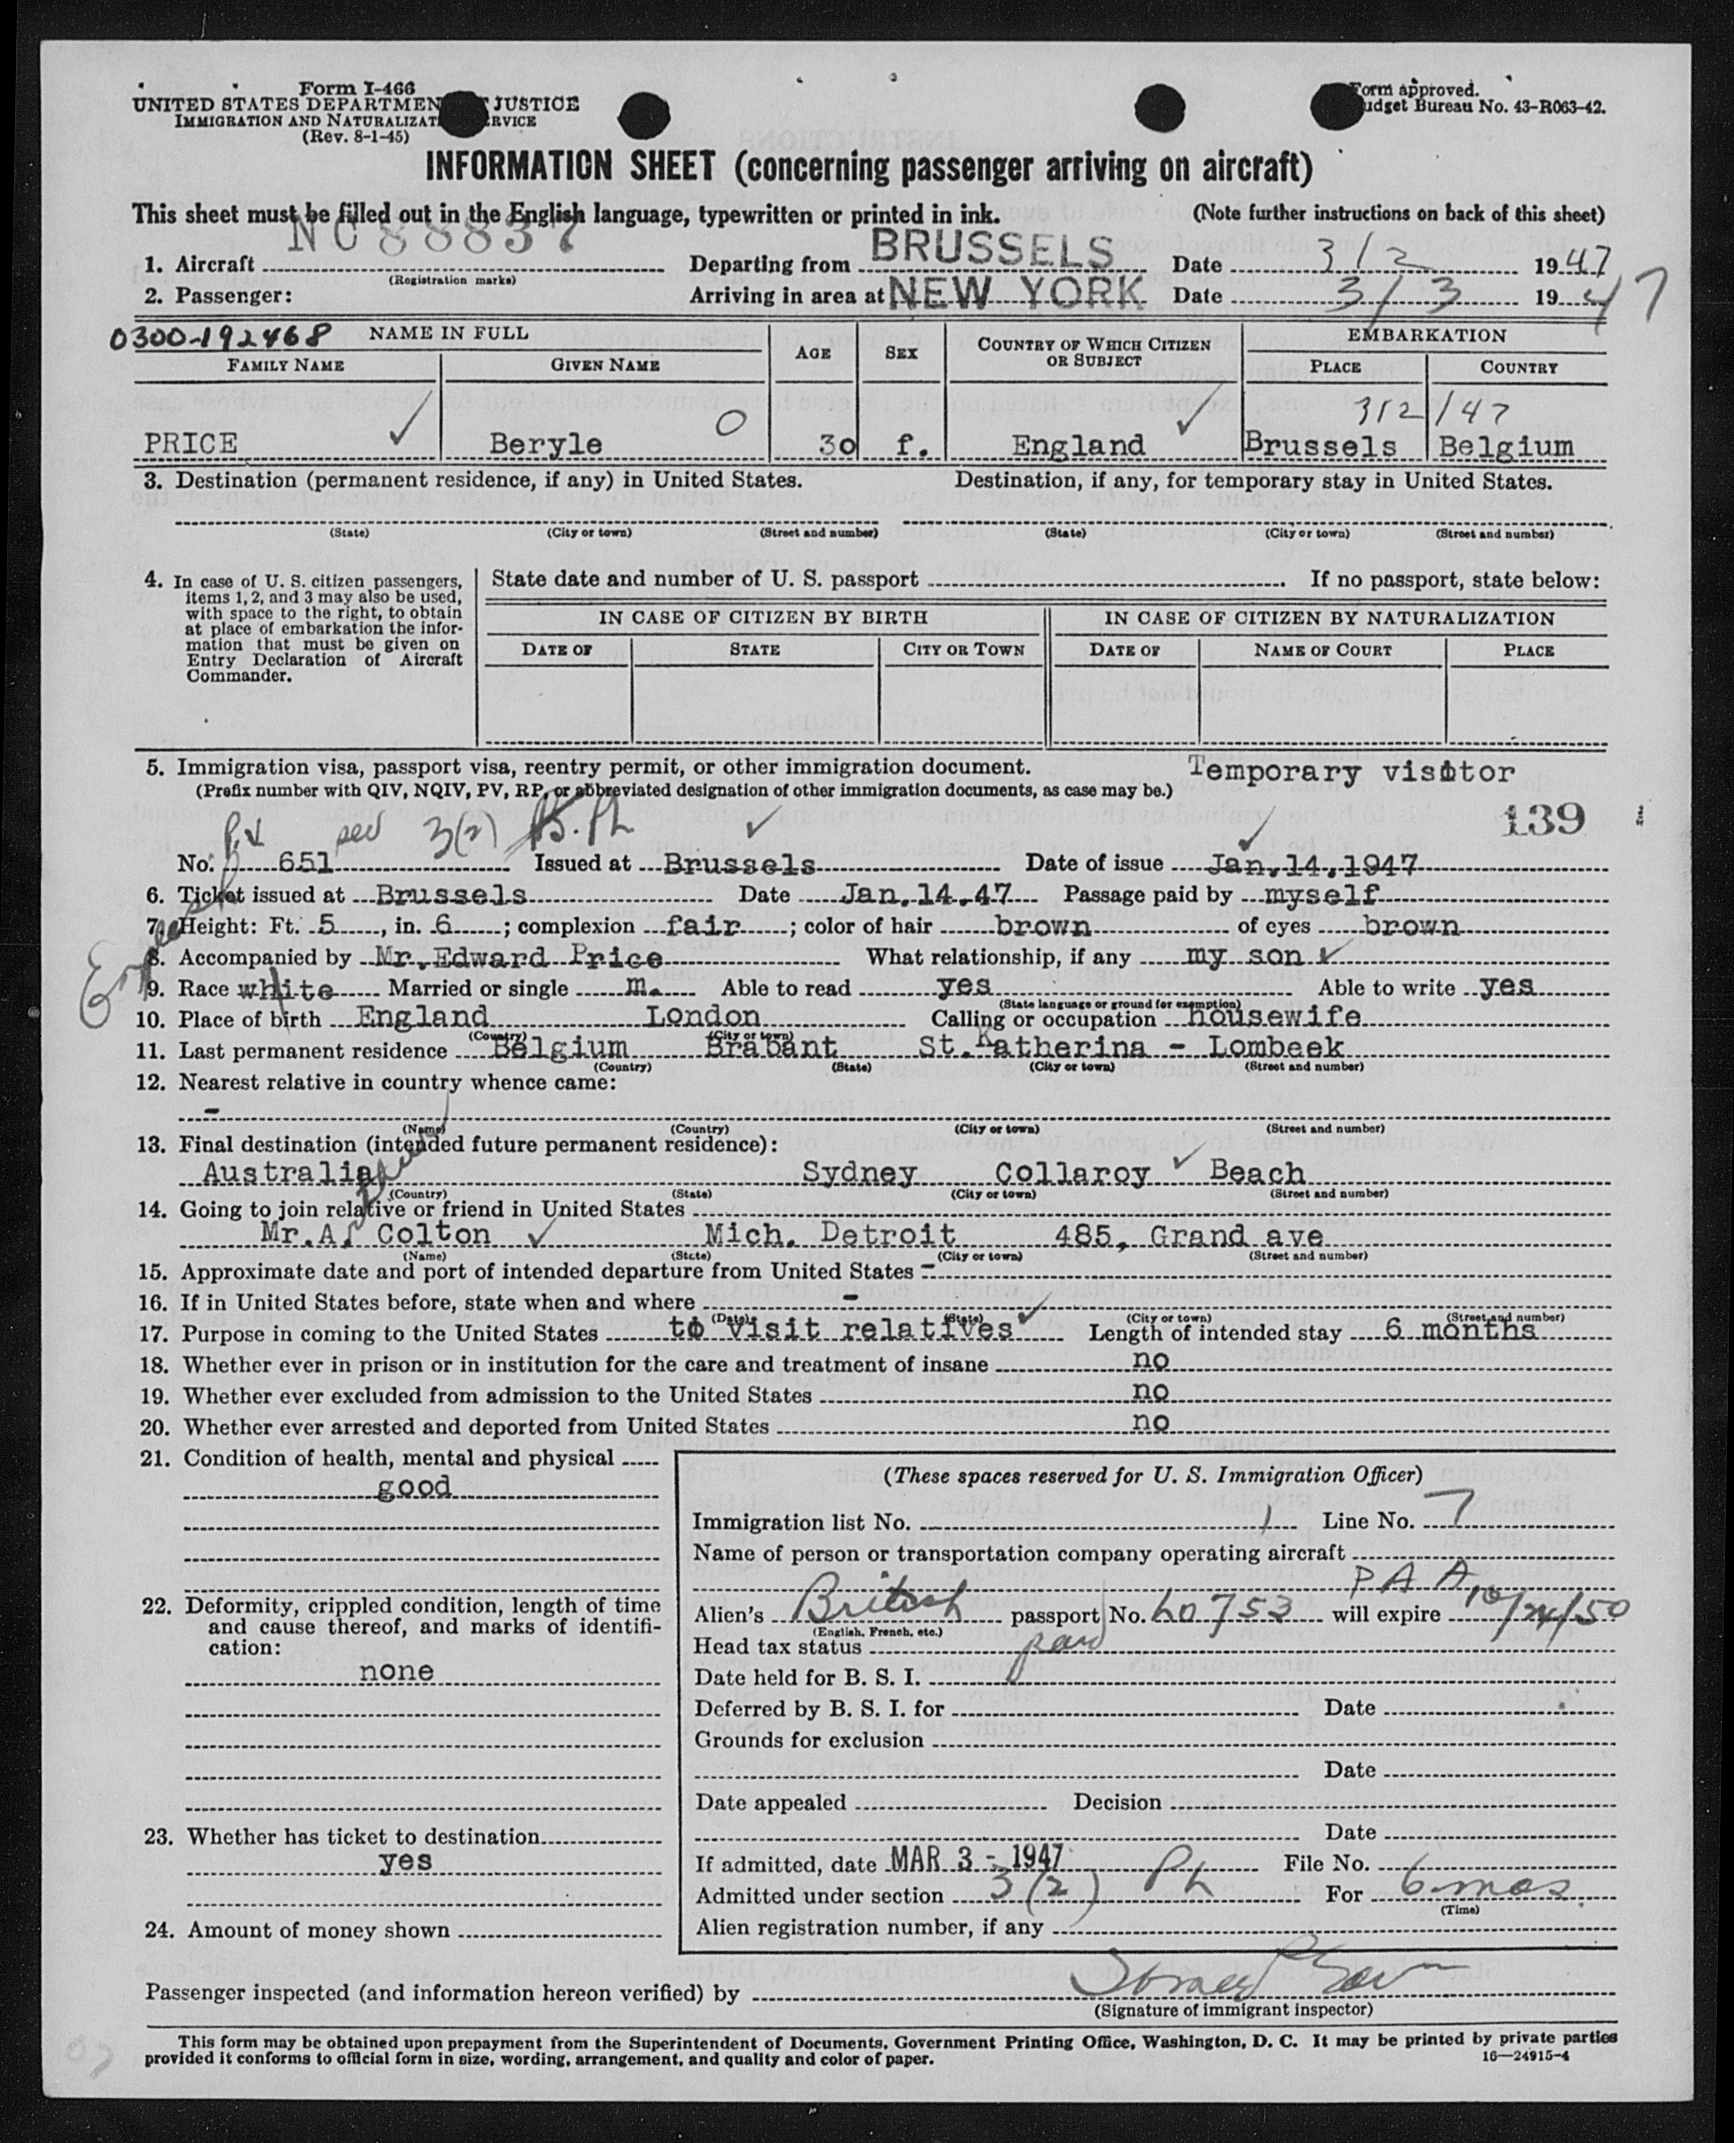 Form I-466
UNITED STATES DEPARTMEN JUSTICE
IMMIGRATION AND NATURALIZAT RVICE
(Rev. 8-1-45)
Form approved.
udget Bureau No. 43-R063-42.
INFORMATION SHEET (concerning passenger arriving on aircraft)
This sheet must be filled out in the English language, typewritten or printed in ink. (Note further instructions on back of this sheet)
1. Aircraft NC88837 Departing from BRUSSELS Date 3/2 1947
(Registration marks)
2. Passenger: Arriving in area at NEW YORK Date 3/3 1947
0300-192468 NAME IN FULL AGE SEX COUNTRY OF WHICH CITIZEN OR SUBJECT EMBARKATION
FAMILY NAME GIVEN NAME PLACE COUNTRY
3/2/47
PRICE Beryle 0 30 f. England Brussels Belgium
3. Destination (permanent residence, if any) in United States. Destination, if any, for temporary stay in United States.
(State) (City or town) (Street and number) (State) (City or town) (Street and number)
4. In case of U. S. citizen passengers, items 1, 2, and 3 may also be used, with space to the right, to obtain at place of embarkation the information that must be given on Entry Declaration of Aircraft Commander.
State date and number of U. S. passport If no passport, state below:
IN CASE OF CITIZEN BY BIRTH IN CASE OF CITIZEN BY NATURALIZATION
DATE OF STATE CITY OR TOWN DATE OF NAME OF COURT PLACE
5. Immigration visa, passport visa, reentry permit, or other immigration document. Temporary visitor
(Prefix number with QIV, NQIV, PV, RP, or abbreviated designation of other immigration documents, as case may be.)
139
P.V. sec 3(2)
No. 651 Issued at Brussels Date of issue Jan. 14. 1947
6. Ticket issued at Brussels Date Jan. 14. 47 Passage paid by myself
7. Height: Ft. 5, in. 6; complexion fair; color of hair brown of eyes brown
8. Accompanied by Mr. Edward Price What relationship, if any my son
9. Race white Married or single m. Able to read yes Able to write yes
(State language or ground for exemption)
10. Place of birth England London Calling or occupation housewife
(Country) (City or town)
11. Last permanent residence Belgium Brabant St. Katherina - Lombeek
(Country) (State) (City or town) (Street and number)
12. Nearest relative in country whence came:
-
(Name) (Country) (City or town) (Street and number)
13. Final destination (intended future permanent residence):
Australia Sydney Collaroy Beach
(Country) (State) (City or town) (Street and number)
14. Going to join relative or friend in United States
Mr. A. Colton Mich. Detroit 485, Grand ave
(Name) (State) (City or town) (Street and number)
15. Approximate date and port of intended departure from United States -
16. If in United States before, state when and where -
(Date) (State) (City or town) (Street and number)
17. Purpose in coming to the United States to visit relatives Length of intended stay 6 months
18. Whether ever in prison or in institution for the care and treatment of insane no
19. Whether ever excluded from admission to the United States no
20. Whether ever arrested and deported from United States no
21. Condition of health, mental and physical
good
22. Deformity, crippled condition, length of time and cause thereof, and marks of identification:
none
23. Whether has ticket to destination
yes
24. Amount of money shown
(These spaces reserved for U. S. Immigration Officer)
Immigration list No. 1 Line No. 7
Name of person or transportation company operating aircraft
PAA
Alien's British passport No. 60753 will expire 10/24/50
(English, French, etc.)
Head tax status paid
Date held for B. S. I.
Deferred by B. S. I. for Date
Grounds for exclusion
Date
Date appealed Decision
Date
If admitted, date MAR 3 - 1947 File No.
Admitted under section 3(2) Ph For 6 mos
(Time)
Alien registration number, if any
Passenger inspected (and information hereon verified) by
(Signature of immigrant inspector)
This form may be obtained upon prepayment from the Superintendent of Documents, Government Printing Office, Washington, D. C. It may be printed by private parties
provided it conforms to official form in size, wording, arrangement, and quality and color of paper. 16—24915-4